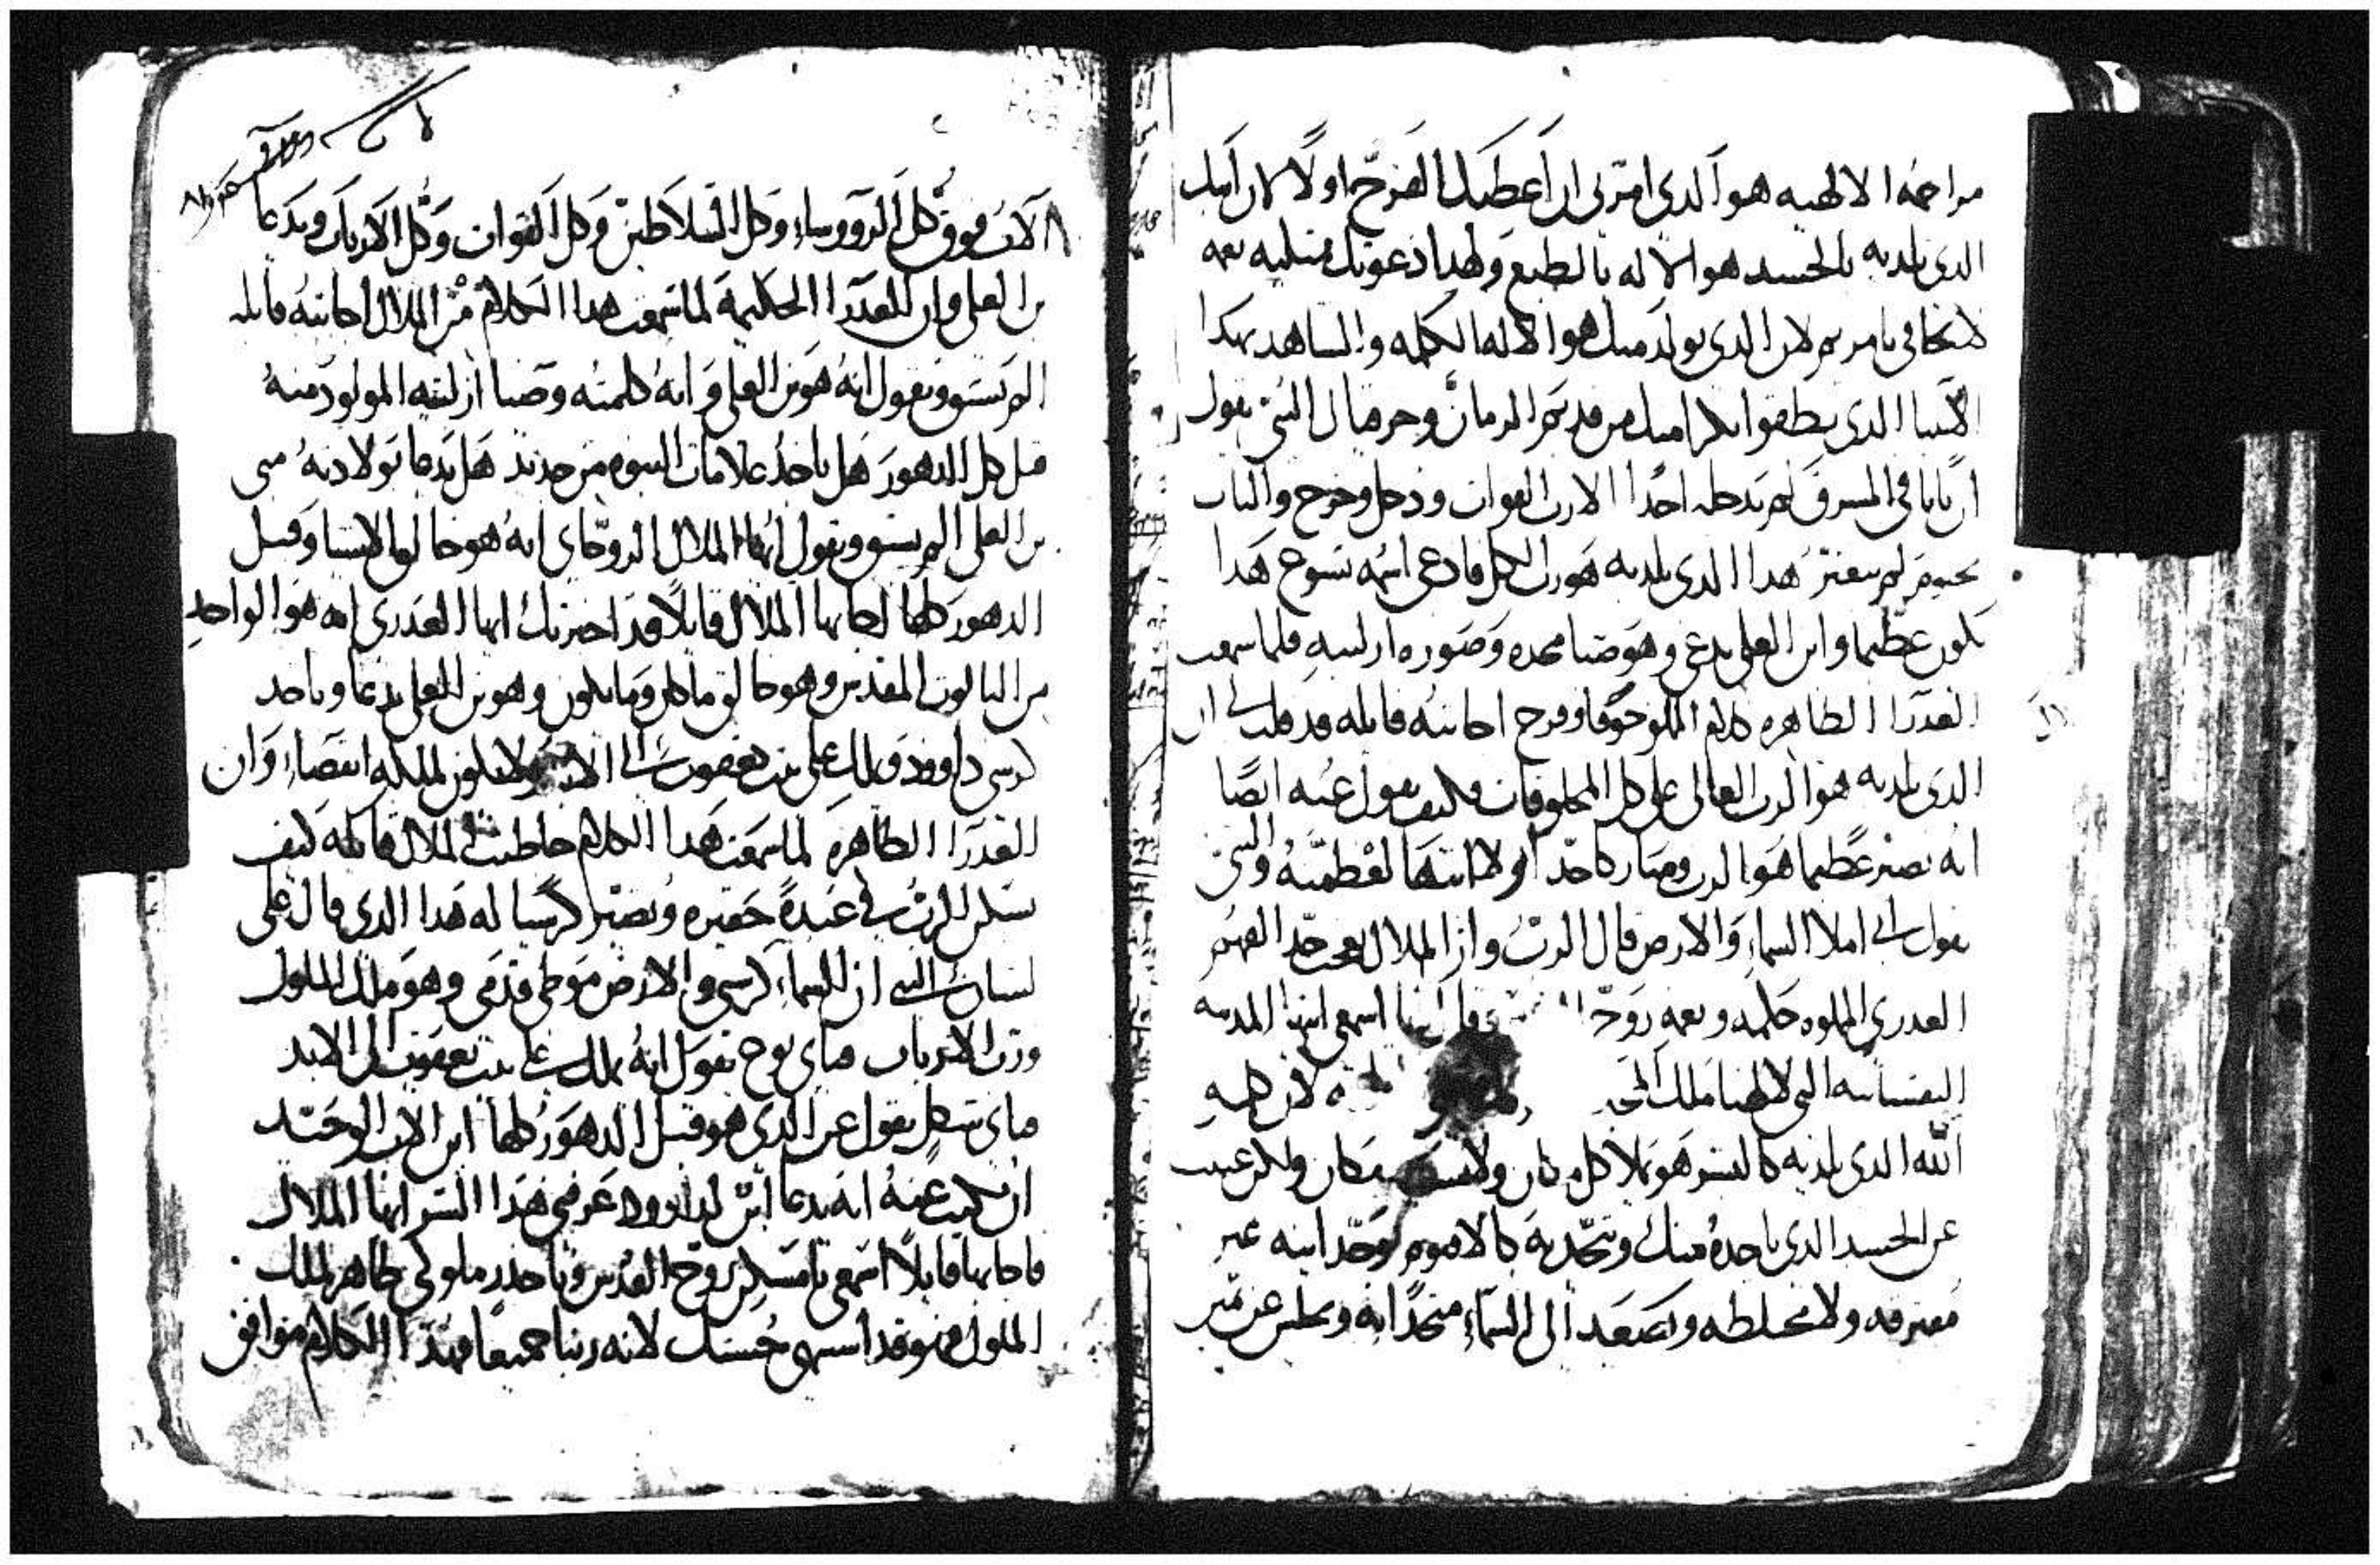 مراحمه الالهيه هو الدى امرنى ان اعطيك الفرح اولا لان
الدى تلديه بالجسد هو الاله بالطبع ولهدا دعوتك ممتليه نعمه
لا تخافى يا مريم لان الدى يولد منك هو الاله الكلمه والشاهد بهدا
الانبيا الدى نطقوا بكرامتك من قديم الزمان وحزقيال النبى يقول
ان بابا فى المشرق لم يدخله احدا الا رب القوات ودخل وخرج والباب
مختوم لم يتغير هدا الدى تلديه هو رب الكل فادعى اسمه يسوع هدا
يكون عظيما وابن العلى يدعى وهو ضيا مجده وصوره ازليته فلما سمعت
العدرا الطاهره كلام الملاك خوفا وفرح اجابته قايله قد قلت لى ان
الدى تلديه هو الرب العالى على كل المخلوقات فكيف يقول عنه ايضا
انه يصير عظيما هو الرب وضابط كل احدا ولا انتها لعظمته والنبى
يقول انى املا السماء والارض قال الرب وان الملاك تعجب جدا لفهم
العدرى المملوه حكمه ونعمه روح وقال اسمعى ايتها المدينه
النفسانيه التى لالهنا ملك المجد لان كلمه
الله الدى تلديه كالبشر هو يملا كل مكان ولا يسعه مكان ولكن
عن الجسد الدى ياخده منك ويتحد به كالاهوته توحدا بنيه غير
مفترقه ولا مختلطه ويصعد الى السماء متحدا به ويجلس عن يمين
الاب فوق كل الرووساء وكل السلاطين وكل القوات وكل الارباب ويدعا
بن العلى وان العدرا الحكيمه لما سمعت هدا الكلام من الملاك اجابته قايله
اليس تقول انه هو بن العلى وانه كلمته وضيا ازليته المولود منه
قبل كل الدهور هل ياخد علامات البنوه من جديد هل يدعا بولادته منى
بن العلى اليس تقول ايها الملاك الروحانى انه هو خالق الاشيا وقبل
الدهور كلها اجابها الملاك قايلا قد اخبرتك ايها العدرى انه هو الواحد
من التالوت المقدس وهو خالق ما كان وما يكون وهو بن العلى يدعا وياخد
كرسى داوود ويملك على بيت يعقوب الى الابد ولا يكون لملكه انقضاء وان
العدرا الطاهره لما سمعت هدا الكلام خاطبت الملاك قايله كيف
يسكن الرب فى عبده حقيره وتصير كرسيا له هدا الدى قال على
لسان النبى ان السماء كرسى والارض موطى قدمى وهو ملك الملوك
ورب الارباب فباى نوع تقول انه يملك على بيت يعقوب الى الابد
فباى شكل تقول عن الدى هو قبل الدهور كلها ابن الاب الوحيد
ان كنت عنه انه يدعا ابن لداوود عرفنى هدا السر ايها الملاك
فاجابها قايلا اسمعى يا مسكن روح القدس وياخدر ملوكى طاهر لملك
الملوك فهو قد اشتهى حسنك لانه ربنا جميعا فهدا الكلام موافق